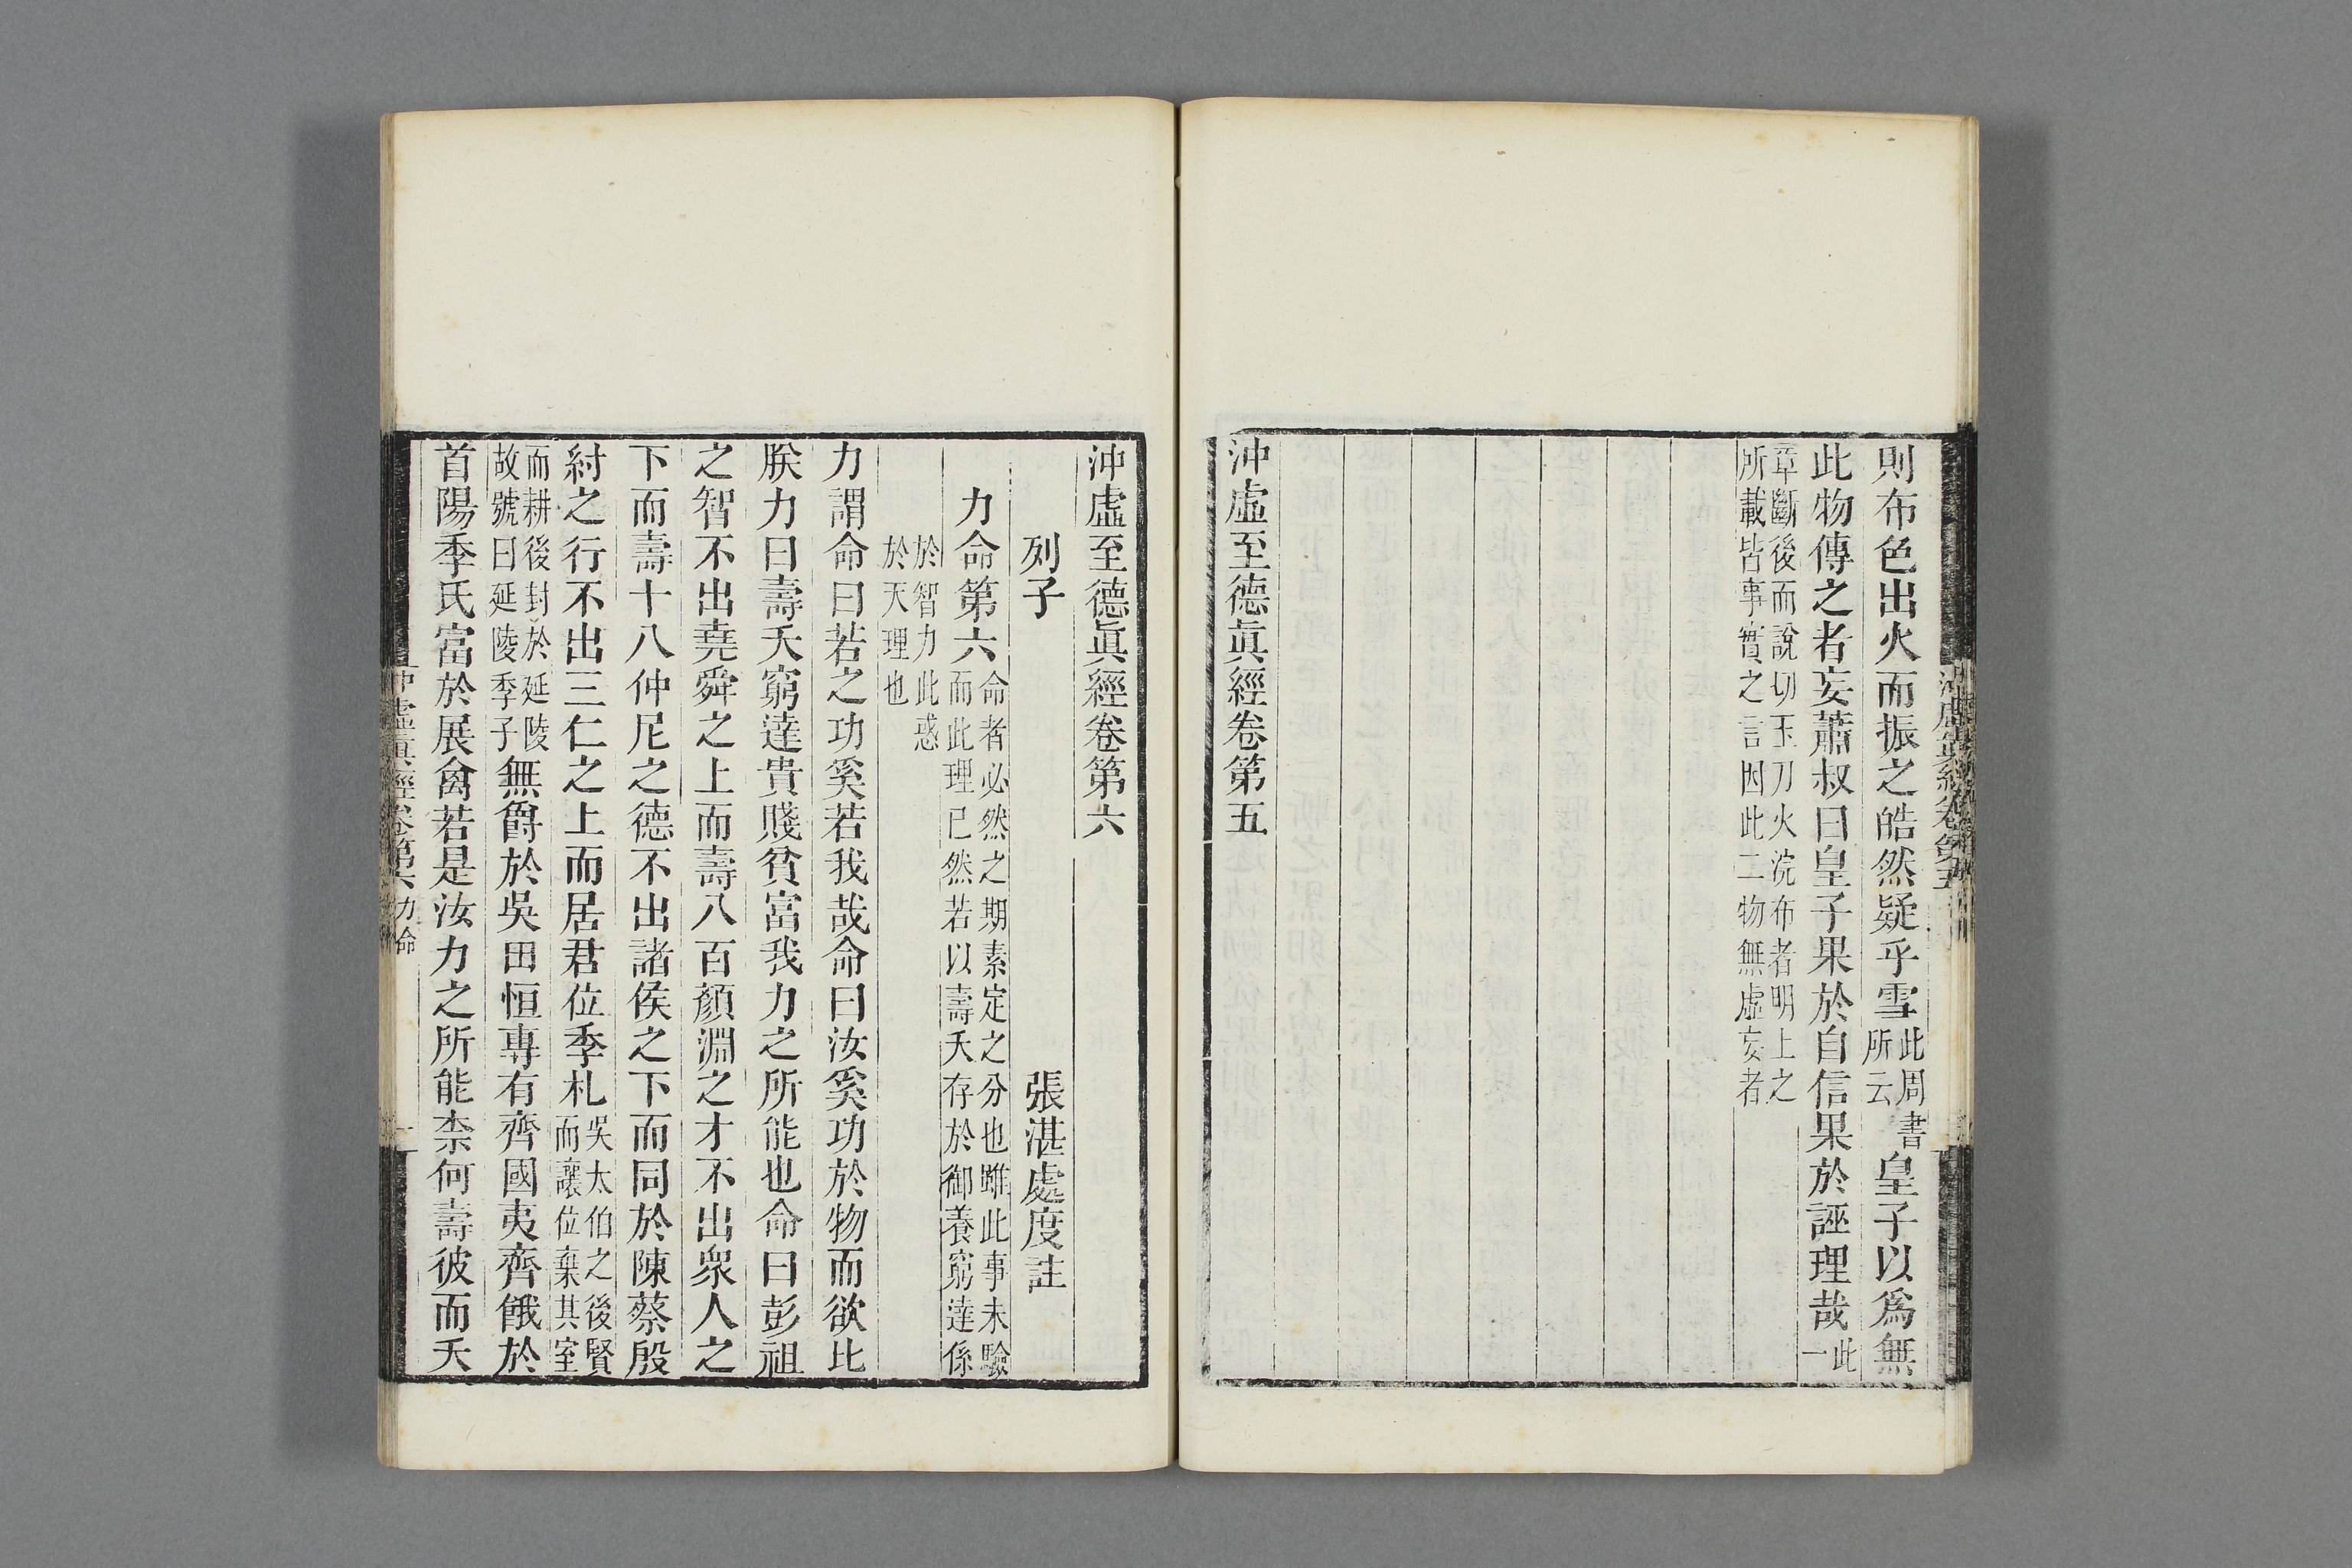 則布色出火而振之皓然疑乎雪此周書所云皇子以爲無
此物傳之者妄蕭叔曰皇子果於自信果於誣理哉此一
章斷後而說切玉刀火浣布者明上之
所載皆事實之言因此二物無虛妄者
沖虛至德眞經卷第五
沖虛至德眞經卷第六
列子　張湛處度註
力命第六
命者必然之期素定之分也雖此事未驗
而此理已然若以壽夭存於御養窮達係
於智力此惑
於天理也
力謂命曰若之功奚若我哉命曰汝奚功於物而欲比
朕力曰壽夭窮達貴賤貧富我力之所能也命曰彭祖
之智不出堯舜之上而壽八百顏淵之才不出衆人之
下而壽十八仲尼之德不出諸侯之下而同於陳蔡殷
紂之行不出三仁之上而居君位季札吳太伯之後賢而讓位棄其室
而耕後封於延陵故號曰延陵季子無爵於吳田恒專有齊國夷齊餓於
首陽季氏富於展禽若是汝力之所能柰何壽彼而夭
沖虛眞經卷第六　力命　一